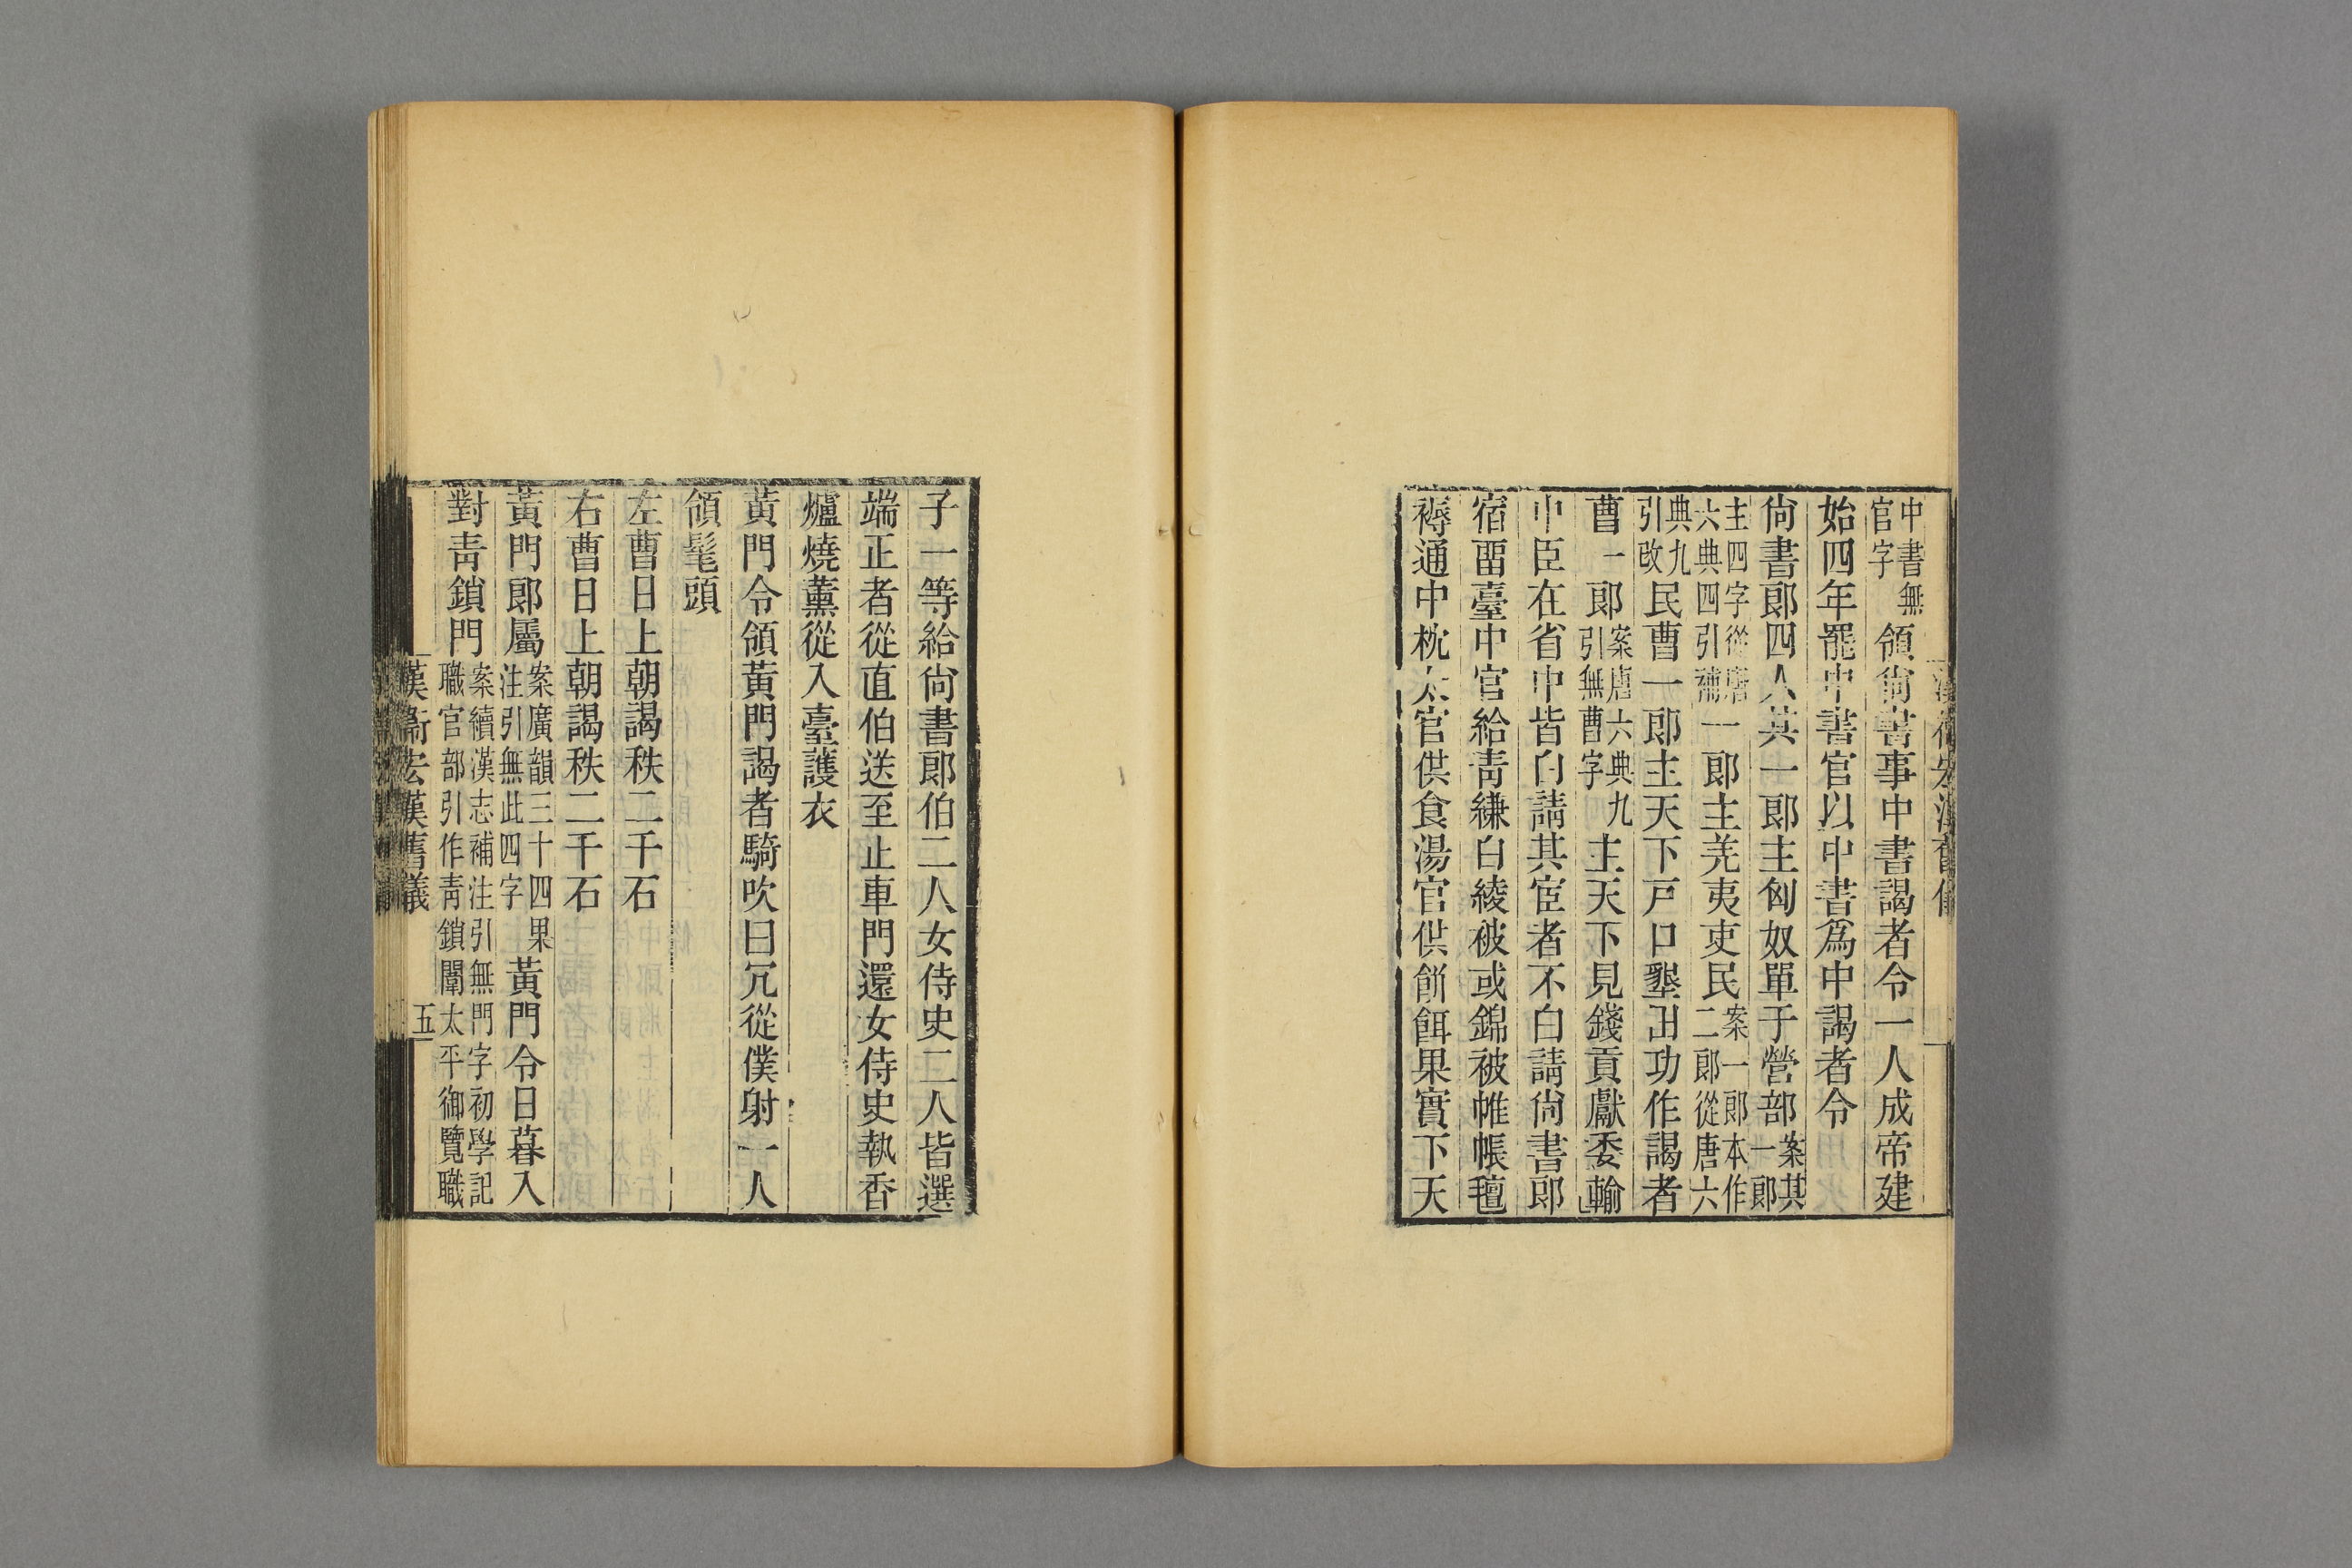 中書無官字領尙書事中書謁者令一人成帝建
始四年罷中書官以中書爲中謁者令
尙書郞四人其一郞主匈奴單于營部案其一郞
主四字從唐六典四引補一郞主羌夷吏民案一郞本作二郞從唐六
典九引改民曹一郞主天下戸口墾田功作謁者
曹一郞案唐六典九引無曹字主天下見錢貢獻委輸
中臣在省中皆白請其宦者不白請尙書郞
宿畱臺中官給靑縑白綾被或錦被帷帳氊
褥通中枕太官供食湯官供餠餌果實下天
子一等給尙書郞伯二人女侍史二人皆選
端正者從直伯送至止車門還女侍史執香
爐燒薰從入臺護衣
黃門令領黃門謁者騎吹曰冗從僕射一人
領髦頭
左曹日上朝謁秩二千石
右曹日上朝謁秩二千石
黃門郞屬案廣韻三十四果注引無此四字黃門令日暮入
對靑鎖門案續漢志補注引無門字初學記職官部引作靑鎖闈太平御覽職
漢衞宏漢舊儀 五